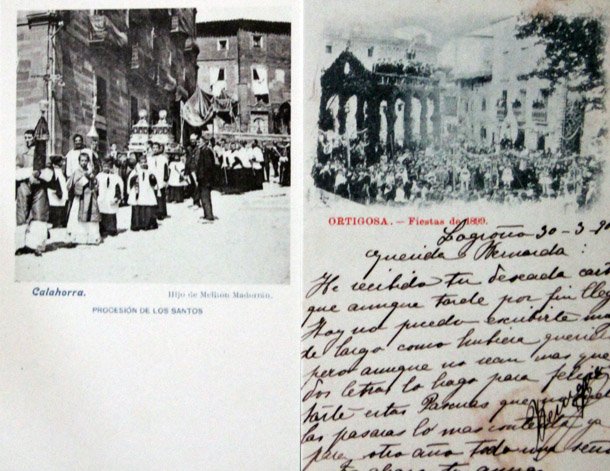 Calahorra.
Hijo de Melitón Madorrán.
PROCESIÓN DE LOS SANTOS
ORTIGOSA.— Fiestas de 1899.
Logroño 30-3-90
Querida Bernarda :
He recibido tu deseada cart
que aunque tarde por fin lleg
Hoy no puedo escribirte m
de largo como hubiera queri
pero aunque no sean mas que
dos letras lo hago para felici
tarte estas Pascuas que
las pasaras lo mas contenta ya
para otro año todo